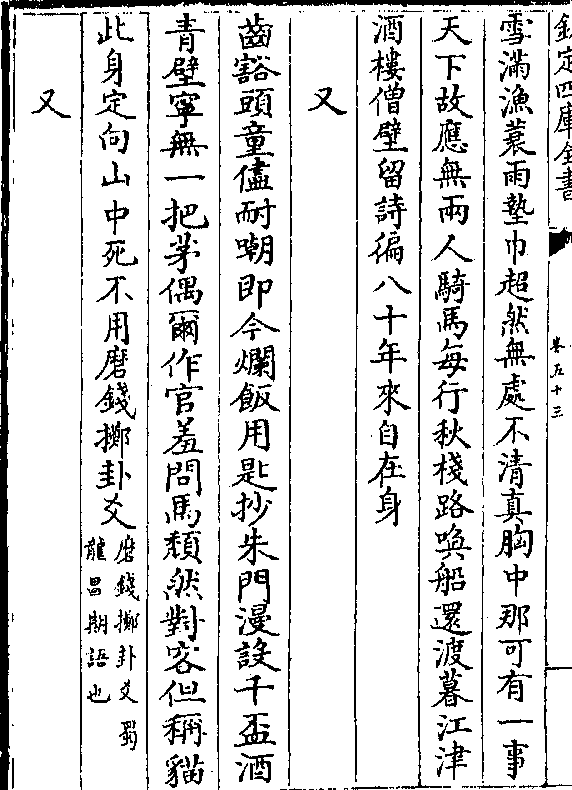 欽定四庫全書
卷五十三
雪滿漁蓑雨墊巾超然無處不清真胸中那可有一事
天下故應無兩人騎馬每行秋棧路喚船還渡暮江津
酒樓僧壁留詩徧八十年來自在身
又
齒豁頭童儘耐嘲即今爛飯用匙抄朱門漫設千盃酒
青壁寧無一把茅偶爾作官羞問馬頽然對客但稱貓
此身定向山中死不用磨錢擲卦爻
磨錢擲卦爻蜀
龍昌期語也
又